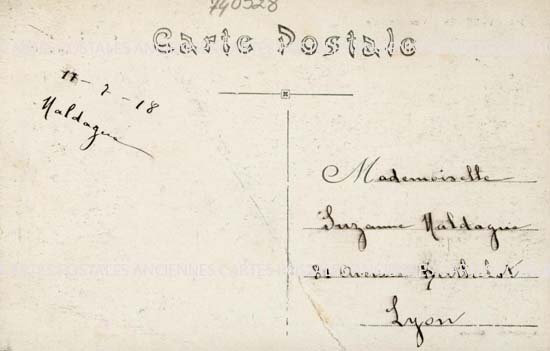 740528
Carte Postale
11-7-18
Maldague
Mademoiselle
Suzanne Maldague
Avenue Berthelot
Lyon
CARTES POSTALES ANCIENNES CARTES POSTALES